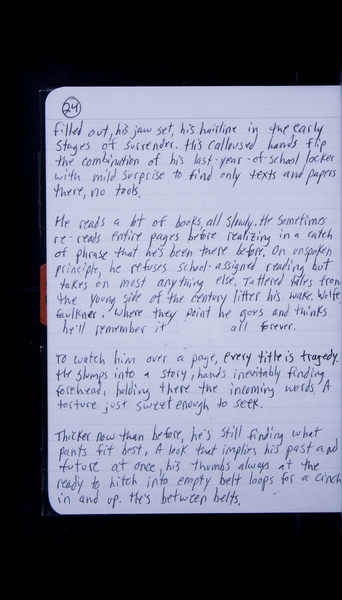 24
filled out, his jaw set, his hairline in the early
stages of surrender. His calloused hands flip
the combination of his last-year-of-school locker
with mild surprise to find only texts and papers
there, no tools.
He reads a lot of books, all slowly. He sometimes
re-reads entire pages before realizing in a catch
of phrase that he's been there before. On unspoken
principle, he refuses school-assigned reading but
takes on most anything else. Tattered tales from
the young side of the century litter his wake. Wolfe,
Faulkner. Where they point he goes and thinks
he'll remember it all forever.
To watch him over a page, every title is tragedy.
He slumps into a story, hands inevitably finding
forehead, holding there the incoming words. A
torture just sweet enough to seek.
Thicker now than before, he's still finding what
pants fit best. A look that implies his past and
future at once, his thumbs always at the
ready to hitch into empty belt loops for a cinch
in and up. He's between belts.